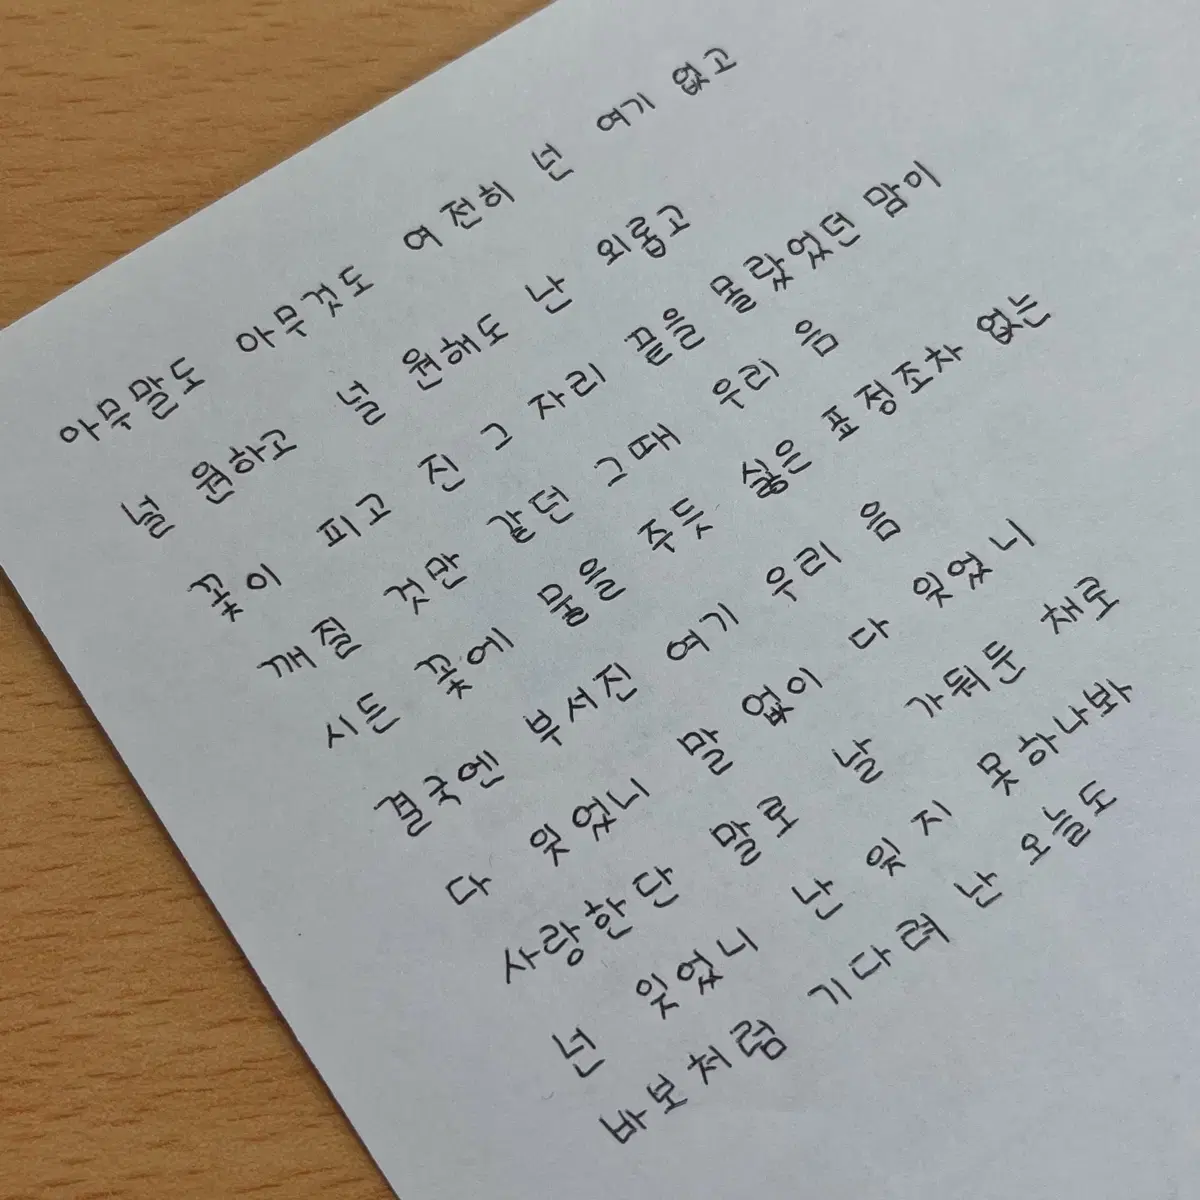 아무말도 아무것도 여전히 넌 여기 없고
널 원하고 널 원해도 난 외롭고
꽃이 피고 진 그 자리 끝을 몰랐었던 맘이
깨질 것만 같던 그때 우리 음
시든 꽃에 물을 주듯 싫은 표정조차 없는
결국엔 부서진 여기 우리 음
다 잊었니 말 없이 다 잊었니
사랑한단 말로 날 가둬둔 채로
넌 잊었니 난 잊지 못하나봐
바보처럼 기다려 난 오늘도